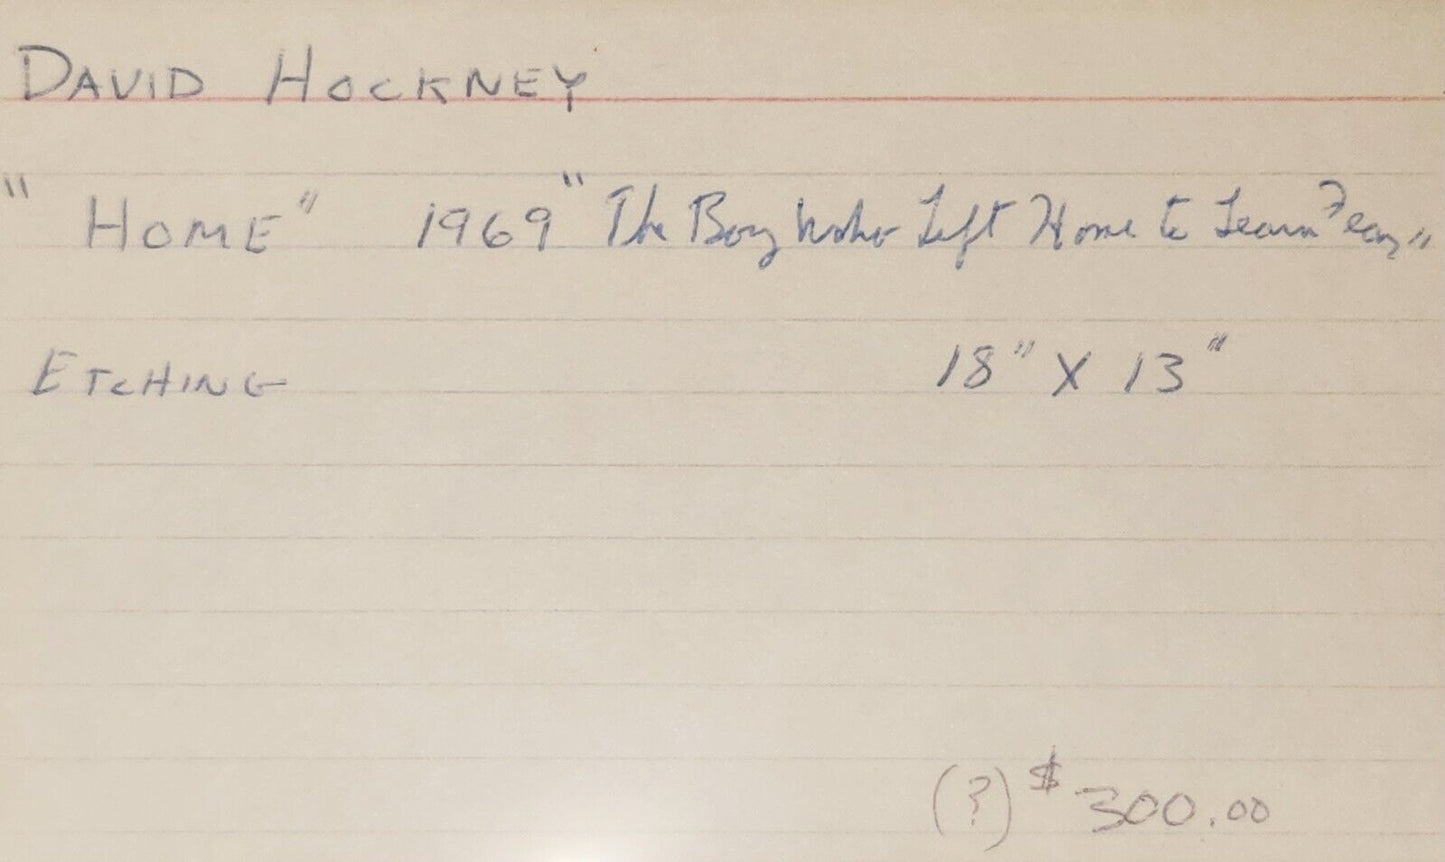 DAVID HOCKNEY
"HOME" 1969 "The Boy Who Left Home to Learn Fear"
ETCHING 18" X 13"
(?) $300.00